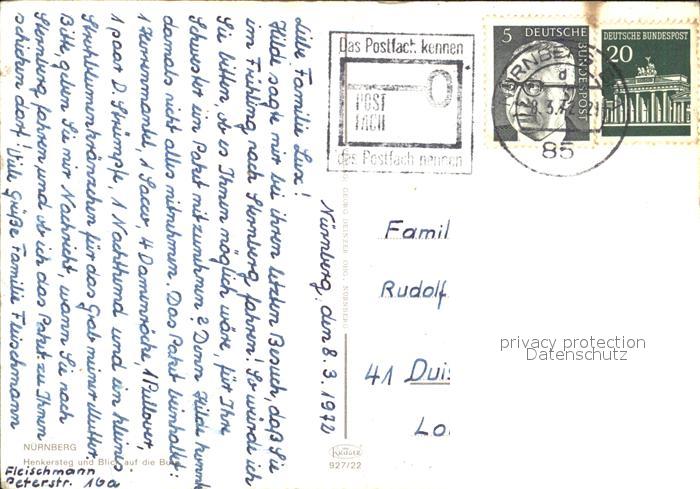 Das Postfach kennen
POST
FACH
das Postfach nennen
5
DEUTSCHE
BUNDESPOST
DEUTSCHE BUNDESPOST
20
NÜRNBERG
d
8.3.72-21
85
Nürnberg, den 8.3.1972
Liebe Familie Lux!
Hilde sagte mir bei ihren letzten Besuch, daß Sie
im Frühling nach Sternberg fahren! So würde ich
Sie bitten, ob es Ihnen möglich wäre, für Ihre
Schwester ein Paket mitzunehmen? Denn Hilde konnte
damals nicht alles mitnehmen. Das Paket beinhaltet:
1 Herrenmantel, 1 Sacco, 4 Damenröcke, 1 Pullover,
1 paar D. Strümpfe, 1 Nachthemd und ein kleines
Strohblumenkränzchen für das Grab meiner Mutter.
Bitte geben Sie mir Nachricht, wann Sie nach
Sternberg fahren und ob ich das Paket zu Ihnen
schicken darf! Viele Grüße Familie Fleischmann
Famil
Rudolf
41 Duis
Lo
privacy protection
Datenschutz
GEORG DENTZER OHG. NÜRNBERG
Krüger
927/22
NÜRNBERG
Henkersteg und Blick auf die Bu
Fleischmann
Peterstr. 16a